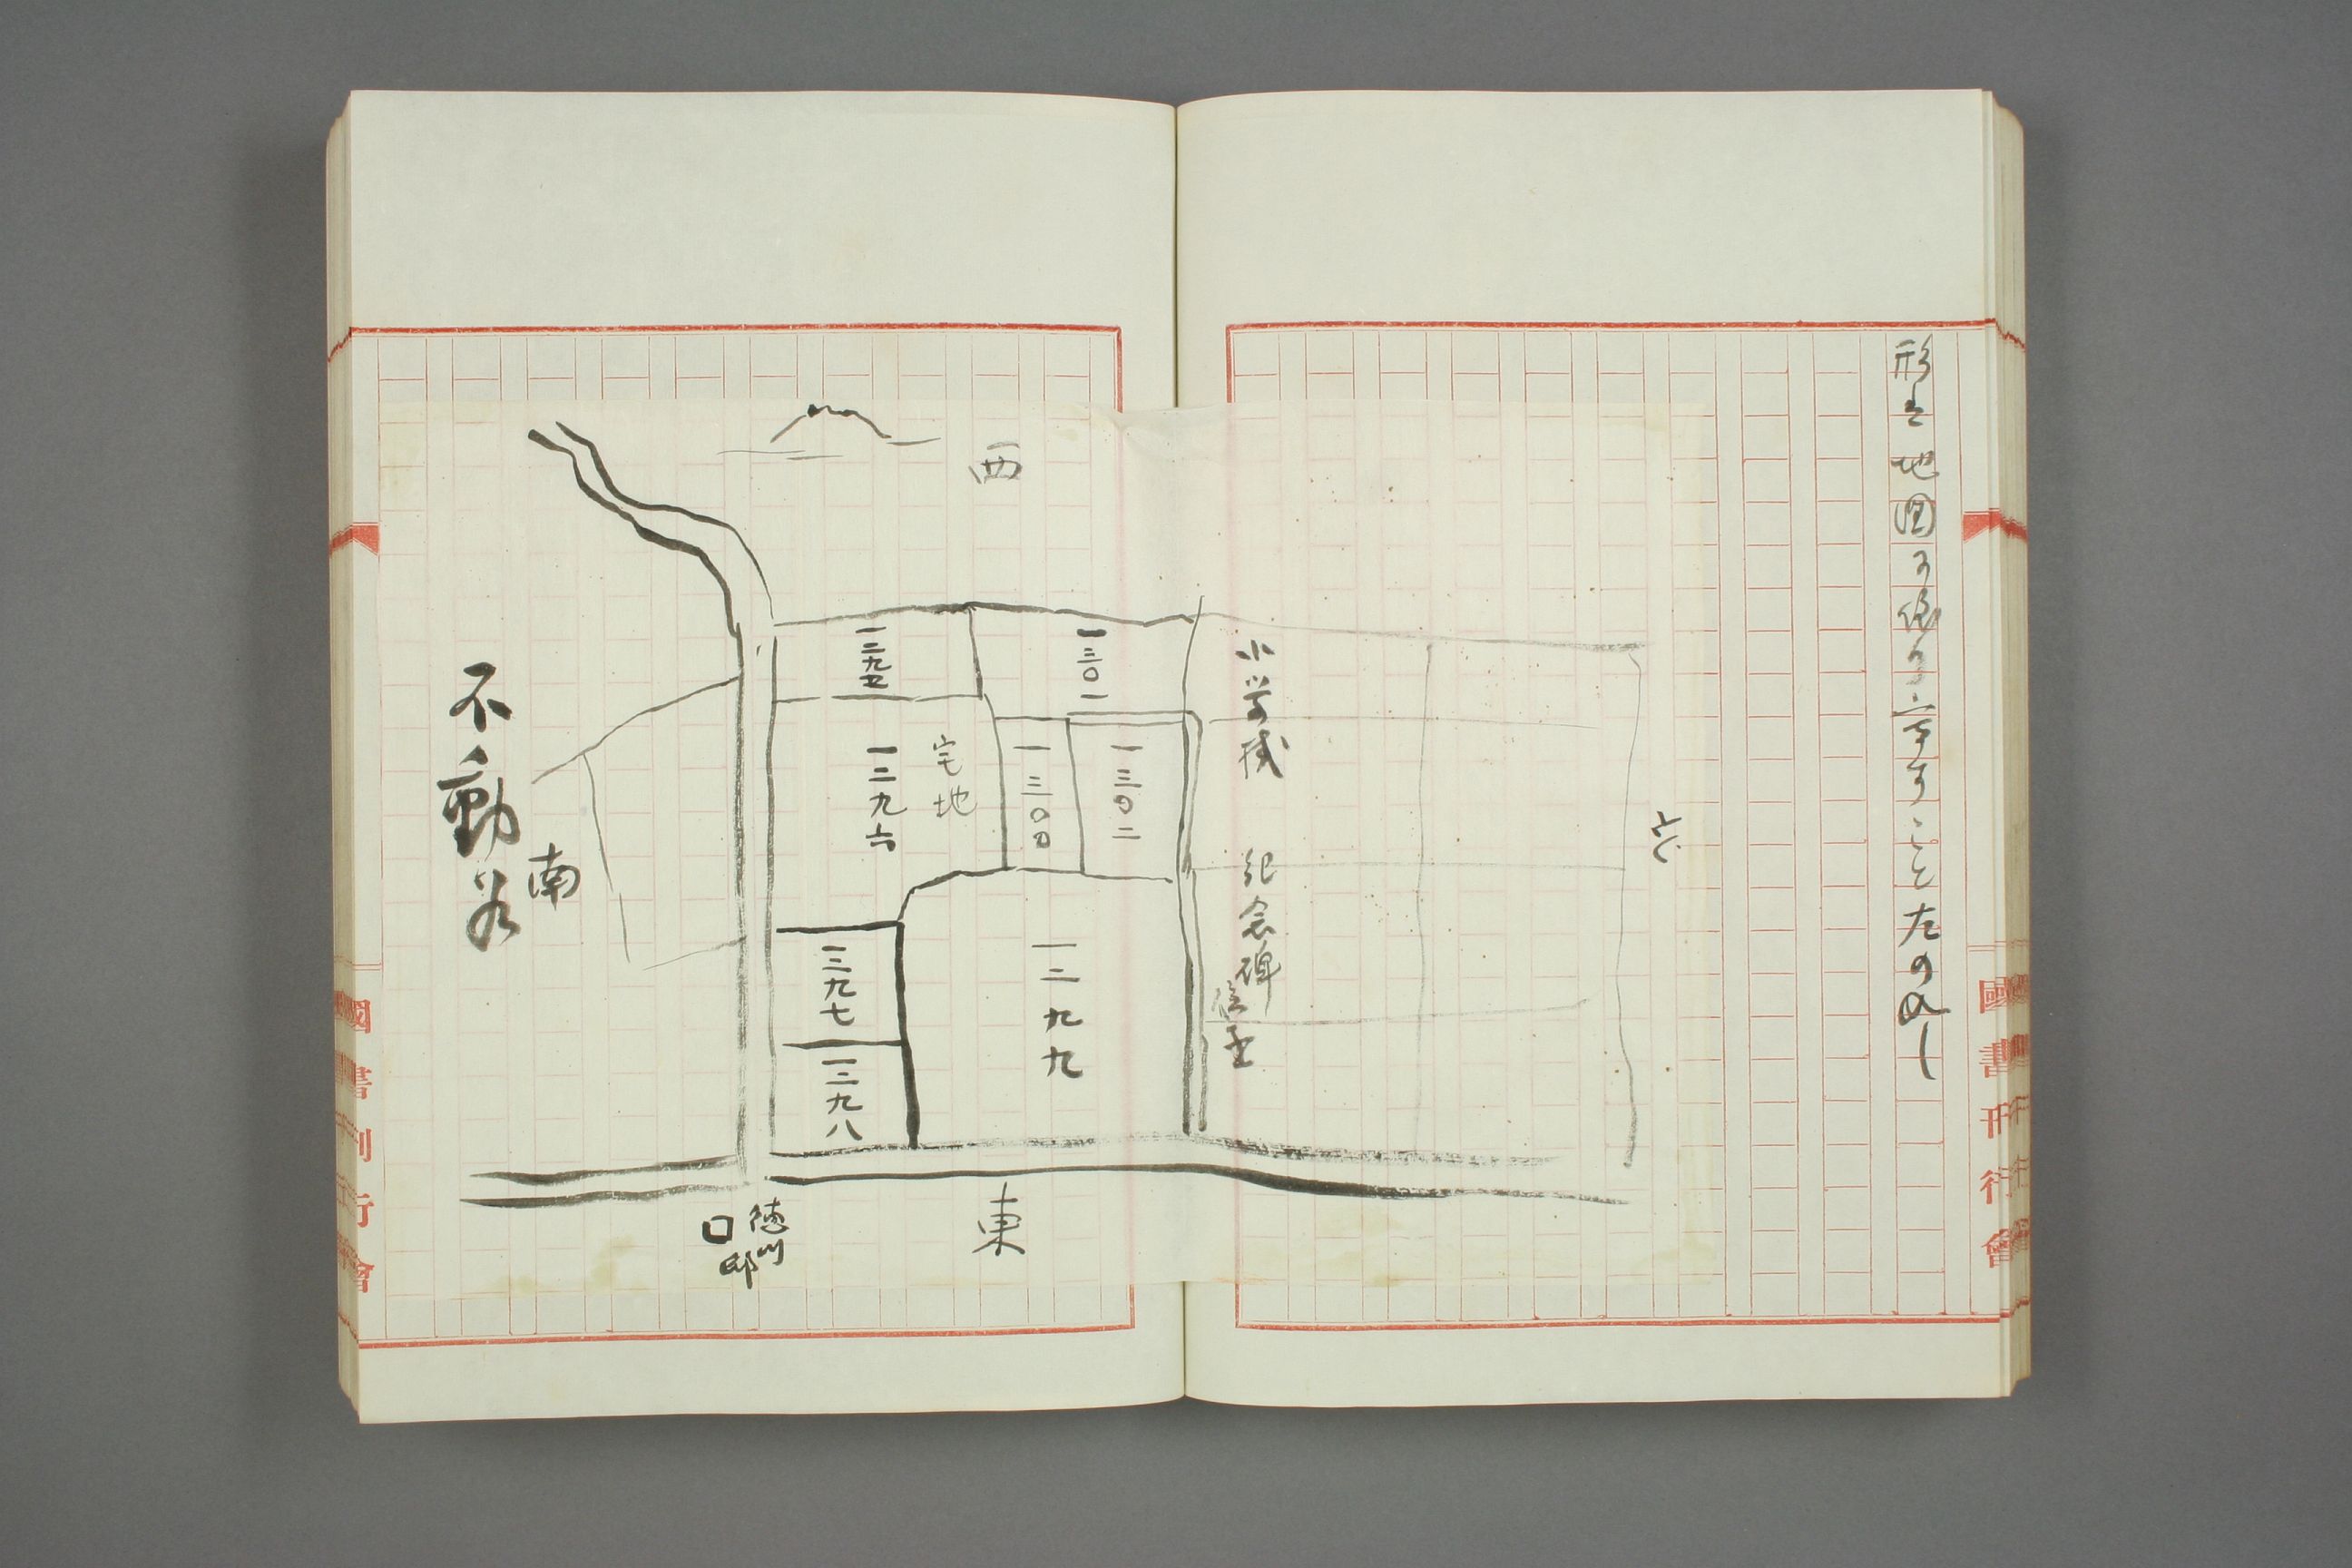 形と地図に依り示すこと左の如し
西
一三〇一
一二九五
小学校
一三〇二
一三〇〇
宅地
一二九六
紀念碑
一二九九
一二九七
一二九八
南
東
徳川
邸
國書刊行會
國書刊行會